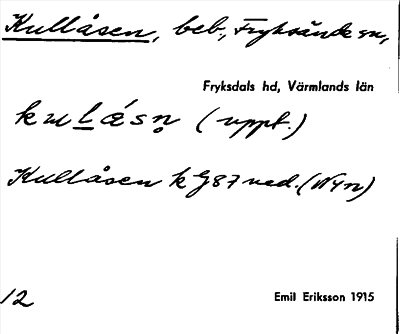 Kullåsen, beb., Fryksände sn,
Fryksdals hd, Värmlands län
(uppt.)
Kullåsen k G87 ned. (N4n)
12
Emil Eriksson 1915